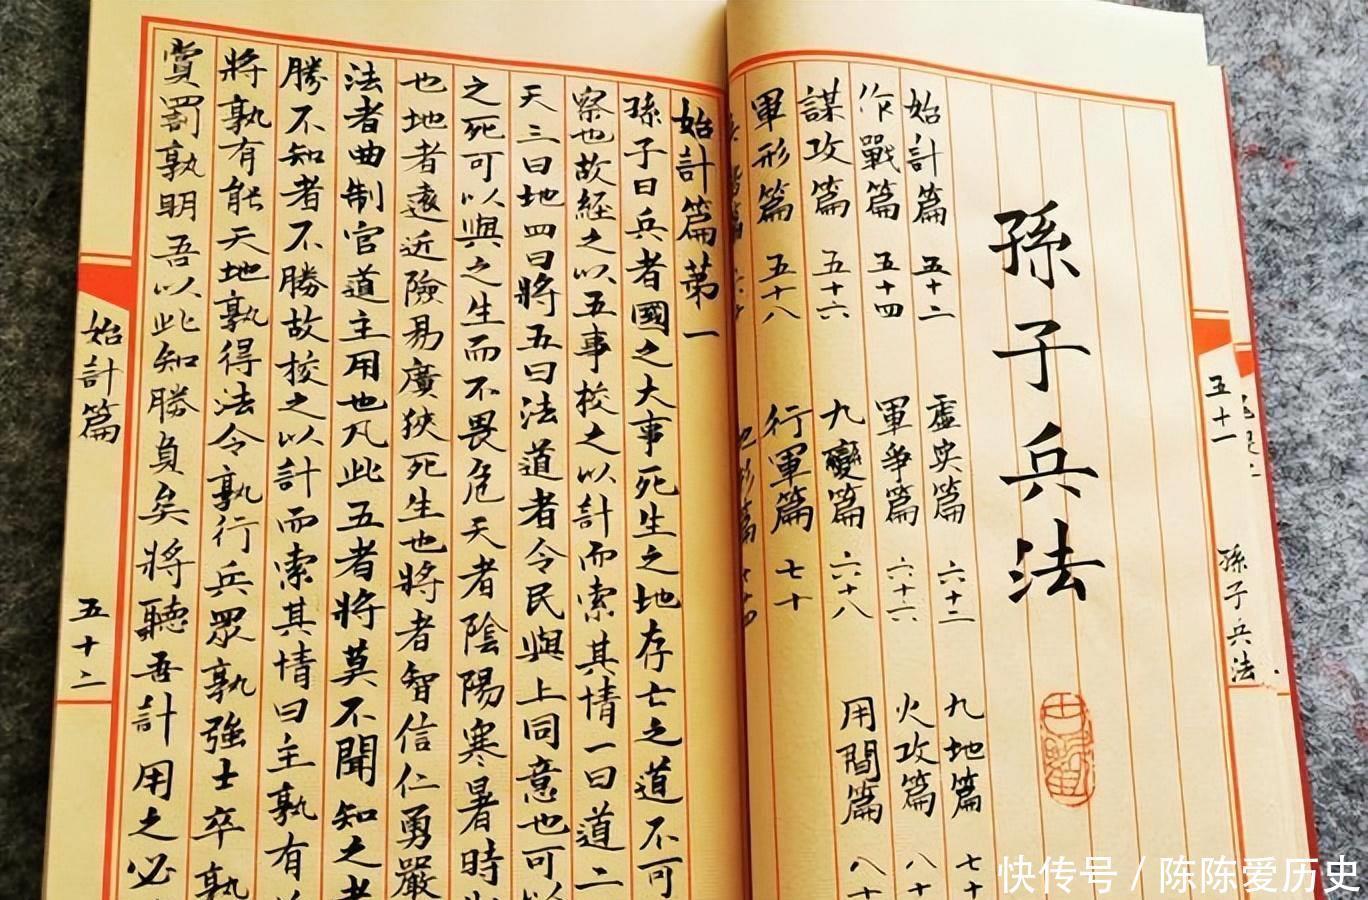 孫子兵法
始計篇 五十二 虛实篇 六十二 九地篇 七十
作戰篇 五十四 軍爭篇 六十六 火攻篇 八十
謀攻篇 五十六 九變篇 六十八 用間篇 八十
軍形篇 五十八 行軍篇 七十
五十一 孫子兵法
始計篇第一
孫子曰兵者國之大事死生之地存亡之道不可
察也故経之以五事校之以計而索其情一曰道二
天三曰地四曰將五曰法道者令民與上同意也可以
之死可以與之生而不畏危天者陰陽寒暑時
也地者遠近險易廣狹死生也將者智信仁勇嚴
法者曲制官道主用也凡此五者將莫不聞知之者
勝不知者不勝故校之以計而索其情曰主孰有
將孰有能天地孰得法令孰行兵眾孰強士卒孰
賞罰孰明吾以此知勝負矣將聽吾計用之必
始計篇 五十二
快传号 / 陈陈爱历史